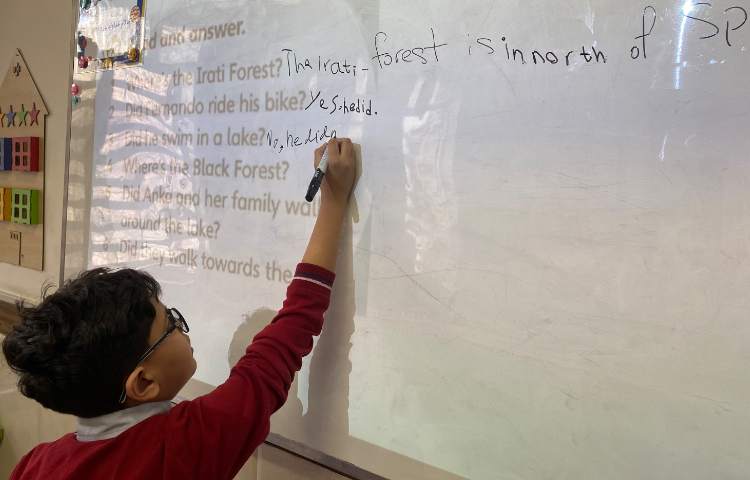 and answer.
the Irati Forest? The Irati- forest is in north of SP
Did Fernando ride his bike? Yes, he did.
Did he swim in a lake? No, he didn
Where's the Black Forest?
Did Anke and her family wal
around the lake?
Did they walk towards the